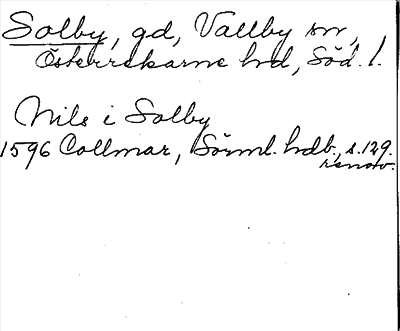 Solby, gd, Vallby sn,
Österrekarne hd, Söd. l.
Nils i Solby
1596 Collmar, Sörml. hdb., s. 129.
renov.